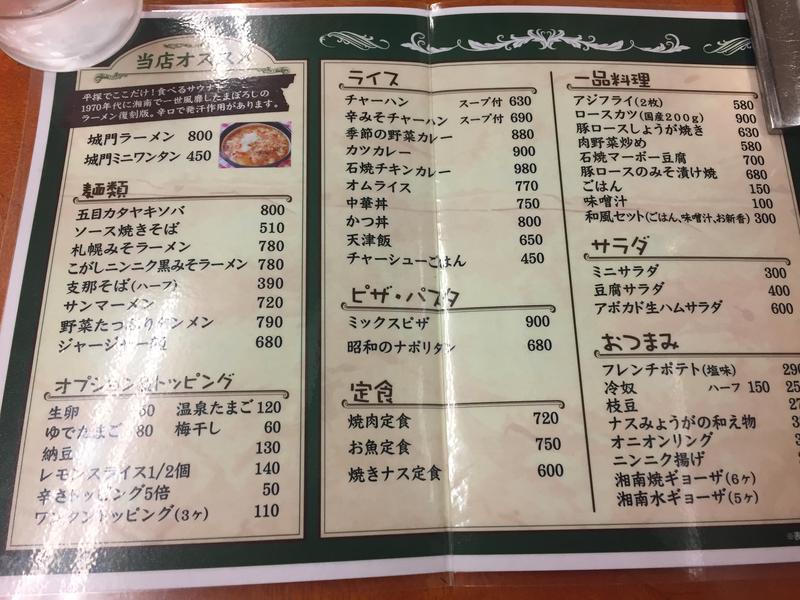 当店オススメ
平塚でここだけ!食べるサウナ
1970年代に湘南で一世風靡したまぼろしの
ラーメン復刻版。辛口で発汗作用があります。
城門ラーメン 800
城門ミニワンタン 450
麺類
五目カタヤキソバ 800
ソース焼きそば 510
札幌みそラーメン 780
こがしニンニク黒みそラーメン 780
支那そば(ハーフ) 390
サンマーメン 720
野菜たっぷりタンメン 790
ジャージャー麺 680
オプション&トッピング
生卵 50 温泉たまご 120
ゆでたまご 80 梅干し 60
納豆 130
レモンスライス1/2個 140
辛さトッピング5倍 50
ワンタントッピング(3ヶ) 110
ライス
チャーハン スープ付 630
辛みそチャーハン スープ付 690
季節の野菜カレー 880
カツカレー 900
石焼チキンカレー 980
オムライス 770
中華丼 750
かつ丼 800
天津飯 650
チャーシューごはん 450
ピザ・パスタ
ミックスピザ 900
昭和のナポリタン 680
定食
焼肉定食 720
お魚定食 750
焼きナス定食 600
一品料理
アジフライ(2枚) 580
ロースカツ(国産200g) 900
豚ロースしょうが焼き 630
肉野菜炒め 580
石焼マーボー豆腐 700
豚ロースのみそ漬け焼 680
ごはん 150
味噌汁 100
和風セット(ごはん、味噌汁、お新香) 300
サラダ
ミニサラダ 300
豆腐サラダ 400
アボカド生ハムサラダ 600
おつまみ
フレンチポテト(塩味) 290
冷奴 ハーフ 150
枝豆
ナスみょうがの和え物
オニオンリング
ニンニク揚げ
湘南焼ギョーザ(6ヶ)
湘南水ギョーザ(5ヶ)